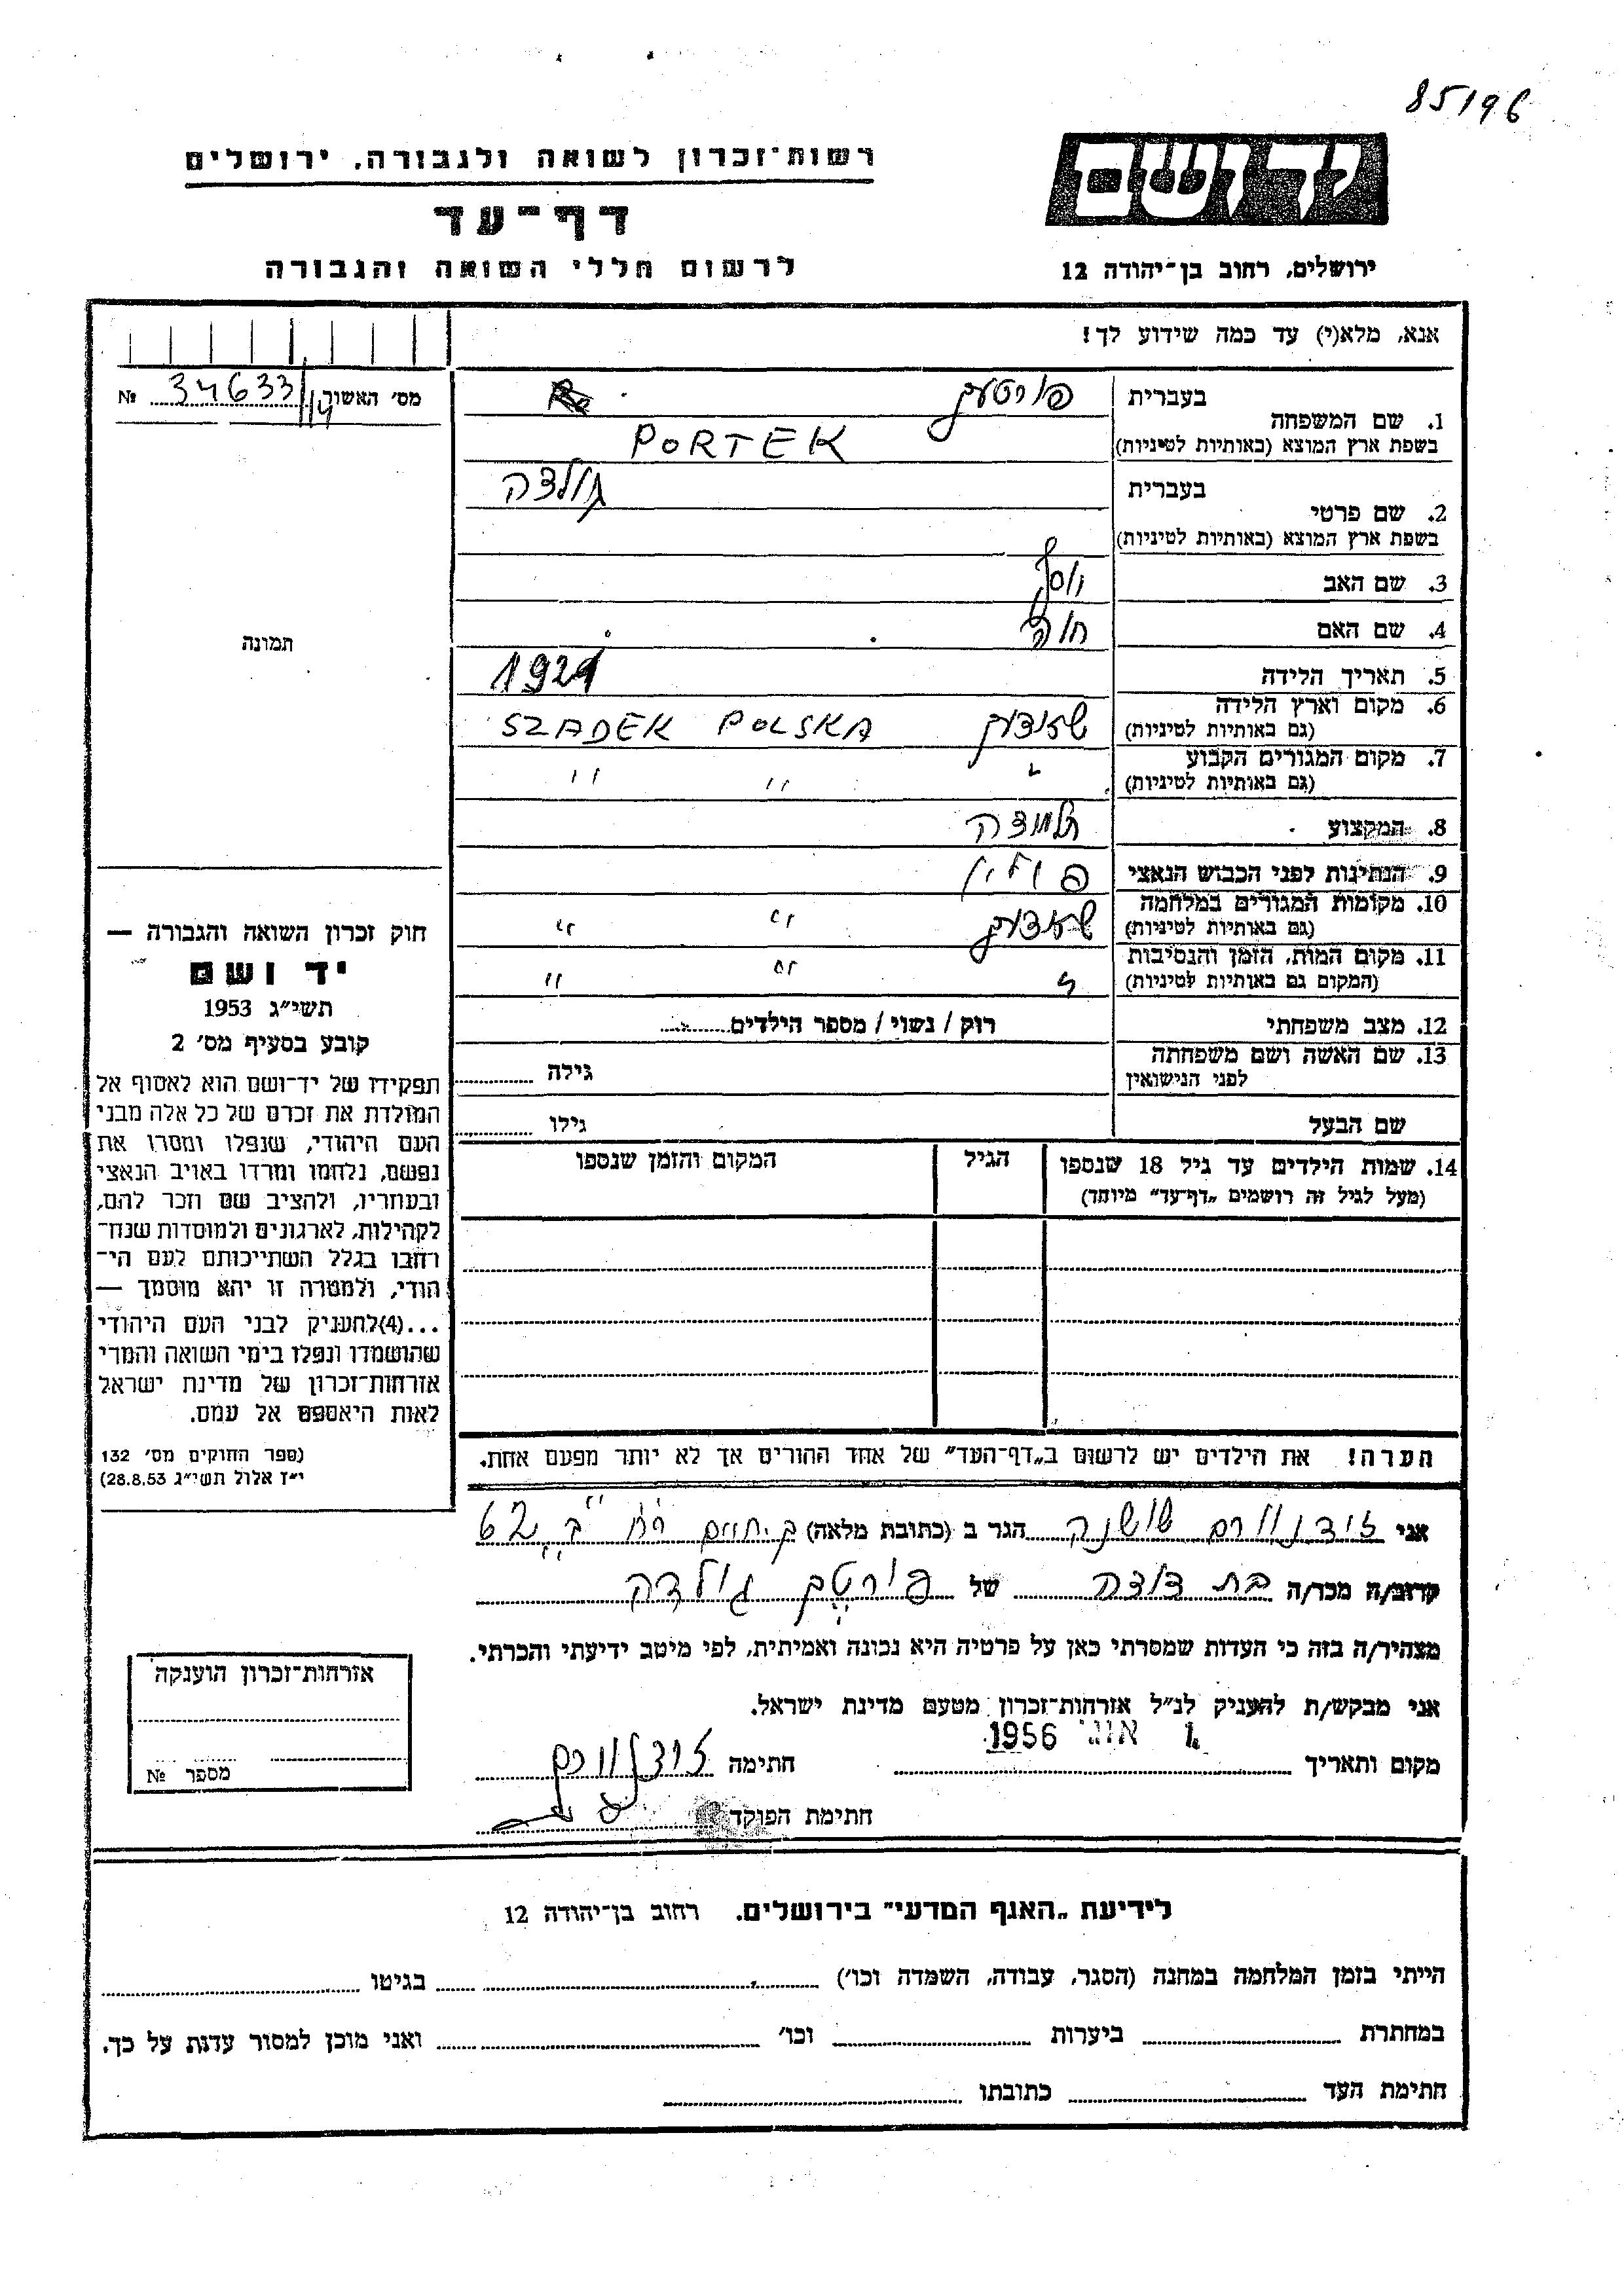 85196
רשות־זכרון לשואה ולגבורה, ירושלים
יד ושם
דף־עד
לרשום חללי השואה והגבורה
ירושלים, רחוב בן־יהודה 12
אנא, מלא(י) עד כמה שידוע לך!
מס׳ האשור 34633/14 №
1. שם המשפחה
בעברית פורטעק
בשפת ארץ המוצא (באותיות לטיניות) PORTEK
2. שם פרטי
בעברית גולדה
בשפת ארץ המוצא (באותיות לטיניות)
3. שם האב יוסף
4. שם האם חוה
5. תאריך הלידה 1921
6. מקום וארץ הלידה
(גם באותיות לטיניות) שאדעק SZADEK POLSKA
7. מקום המגורים הקבוע
(גם באותיות לטיניות) " " "
8. המקצוע תלמידה
9. הנתינות לפני הכבוש הנאצי פולין
10. מקומות המגורים במלחמה
(גם באותיות לטיניות) שאדעק " "
11. מקום המות, הזמן והנסיבות
(המקום גם באותיות לטיניות) " " "
12. מצב משפחתי רוק / נשוי / מספר הילדים
13. שם האשה ושם משפחתה
לפני הנישואין גילה
שם הבעל גילו
14. שמות הילדים עד גיל 18 שנספו הגיל המקום והזמן שנספו
(מעל לגיל זה רושמים „דף־עד" מיוחד)
תמונה
חוק זכרון השואה והגבורה —
יד ושם
תשי״ג 1953
קובע בסעיף מס׳ 2
תפקידו של יד־ושם הוא לאסוף אל
המולדת את זכרם של כל אלה מבני
העם היהודי, שנפלו ומסרו את
נפשם, נלחמו ומרדו באויב הנאצי
ובעוזריו, ולהציב שם וזכר להם,
לקהילות, לארגונים ולמוסדות שנח־
רבו בגלל השתייכותם לעם הי־
הודי, ולמטרה זו יהא מוסמך —
...(4)להעניק לבני העם היהודי
שהושמדו ונפלו בימי השואה והמרי
אזרחות־זכרון של מדינת ישראל
לאות היאספם אל עמם.
(ספר החוקים מס׳ 132
י״ז אלול תשי״ג 28.8.53)
הערה! את הילדים יש לרשום ב„דף־העד" של אחד ההורים אך לא יותר מפעם אחת.
אני שושנה הגר ב (כתובת מלאה) ק. חיים רח' ב' 62
קרוב/ה מכר/ה בת דודה של פורטק גולדה
מצהיר/ה בזה כי העדות שמסרתי כאן על פרטיה היא נכונה ואמיתית, לפי מיטב ידיעתי והכרתי.
אני מבקש/ת להעניק לנ״ל אזרחות־זכרון מטעם מדינת ישראל.
1956
מקום ותאריך חתימה
חתימת הפוקד
אזרחות־זכרון הוענקה
מספר №
לידיעת „האגף המדעי" בירושלים. רחוב בן־יהודה 12
הייתי בזמן המלחמה במחנה (הסגר, עבודה, השמדה וכו׳) בגיטו
במחתרת ביערות וכו׳ ואני מוכן למסור עדות על כך.
חתימת העד כתובתו